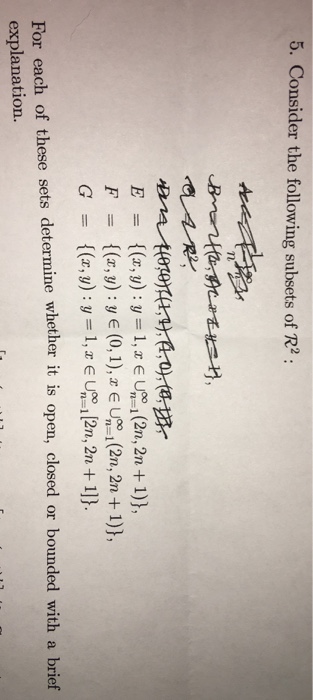 5. Consider the following subsets of R² :
E = {(x, y) : y = 1, x ∈ ∪∞n=1(2n, 2n + 1)},
F = {(x, y) : y ∈ (0, 1), x ∈ ∪∞n=1(2n, 2n + 1)},
G = {(x, y) : y = 1, x ∈ ∪∞n=1[2n, 2n + 1]}.
For each of these sets determine whether it is open, closed or bounded with a brief
explanation.